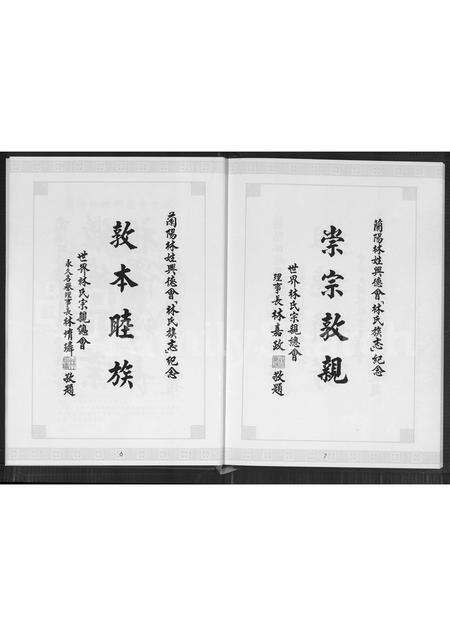 蘭陽林姓興德會「林氏族志」紀念
崇宗敦親
世界林氏宗親總會
理事長林嘉政
敬題
7
蘭陽林姓興德會「林氏族志」紀念
敦本睦族
世界林氏宗親總會
永久名譽理事長林
敬題
6